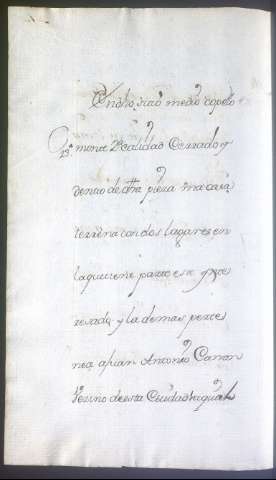 En dho, sitio medio copelo
mone Realidad Cerrado y
dentro de dha pieza vna casa
terrena con dos lagares en
la que tiene parte este ynte
resado y la demas perte
neze a Juan Antonio Carron
Vezino de esta Ciudad la qual